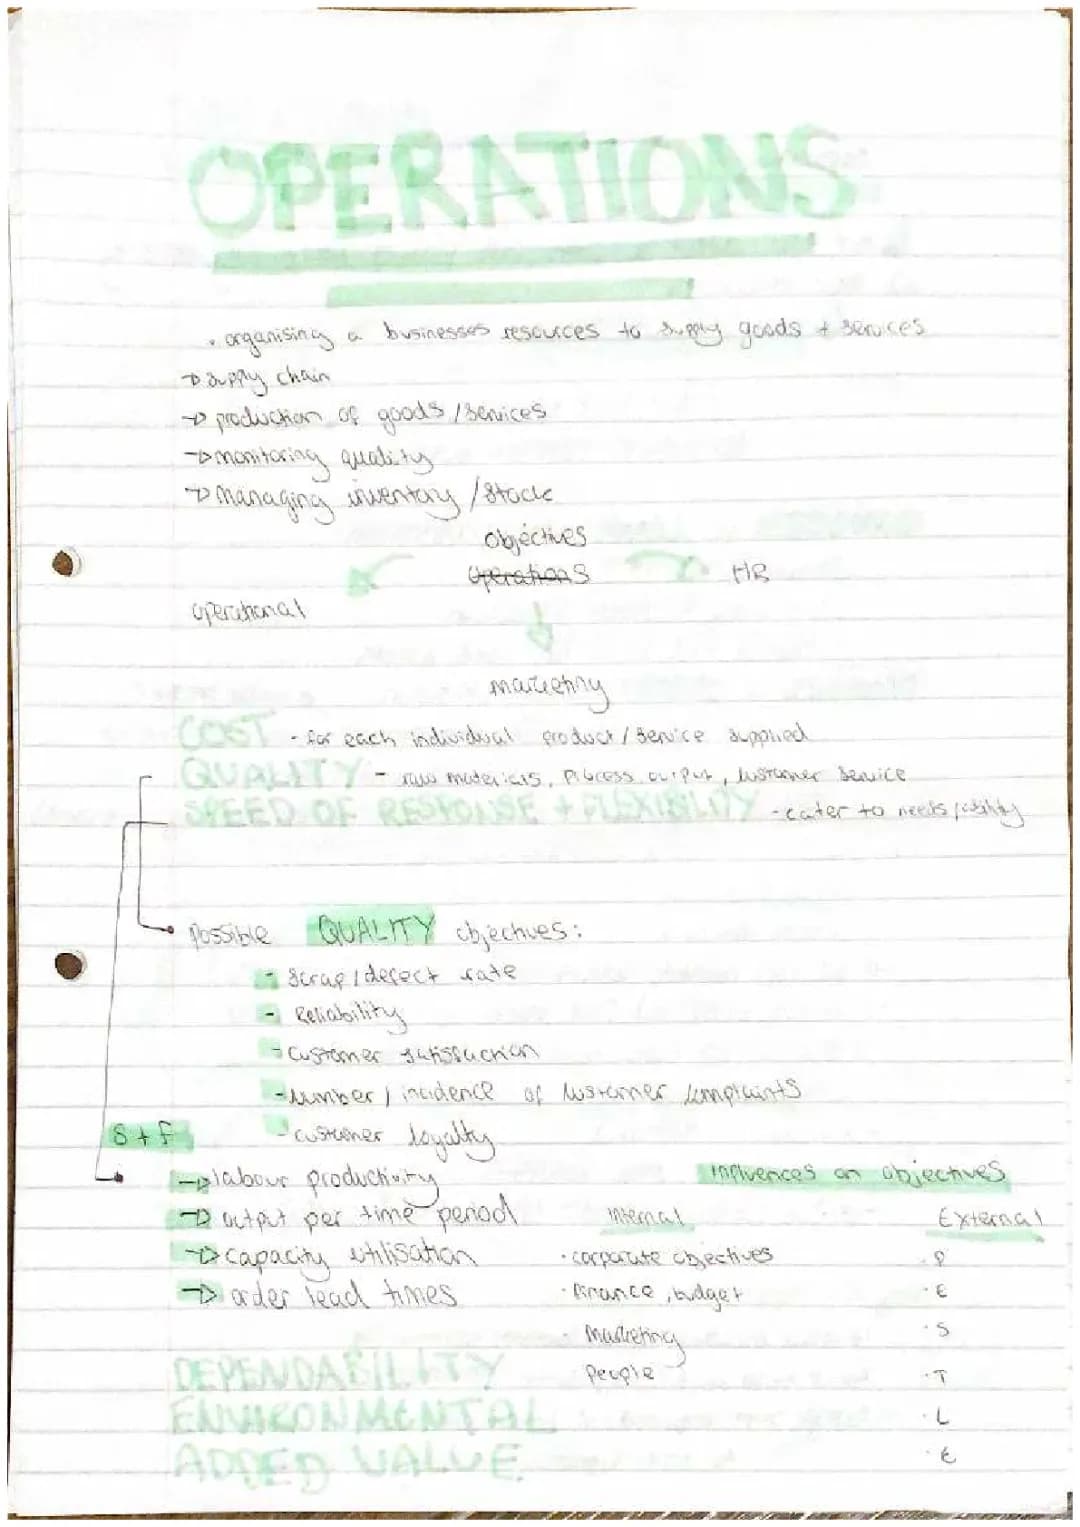 OPERATIONS
• organising a businesses resources to supply goods + services
→ supply chain
→ production of goods / services
→ monitoring quality
→ Managing inventory / stock
objectives
operations
HR
operational
marketing
COST - for each individual product / service supplied
QUALITY - raw materials, process output, customer service
SPEED OF RESPONSE + FLEXIBILITY - cater to needs /
possible QUALITY objectives:
- scrap / defect rate
- Reliability
- customer satisfaction
- number / incidence of customer complaints
- customer loyalty
S + F
→ labour productivity
→ output per time period
→ capacity utilisation
→ order lead times
influences on objectives
internal
• corporate objectives
• finance, budget
• Marketing
People
External
• P
• E
• S
• T
• L
• E
DEPENDABILITY
ENVIRONMENTAL
ADDED VALUE